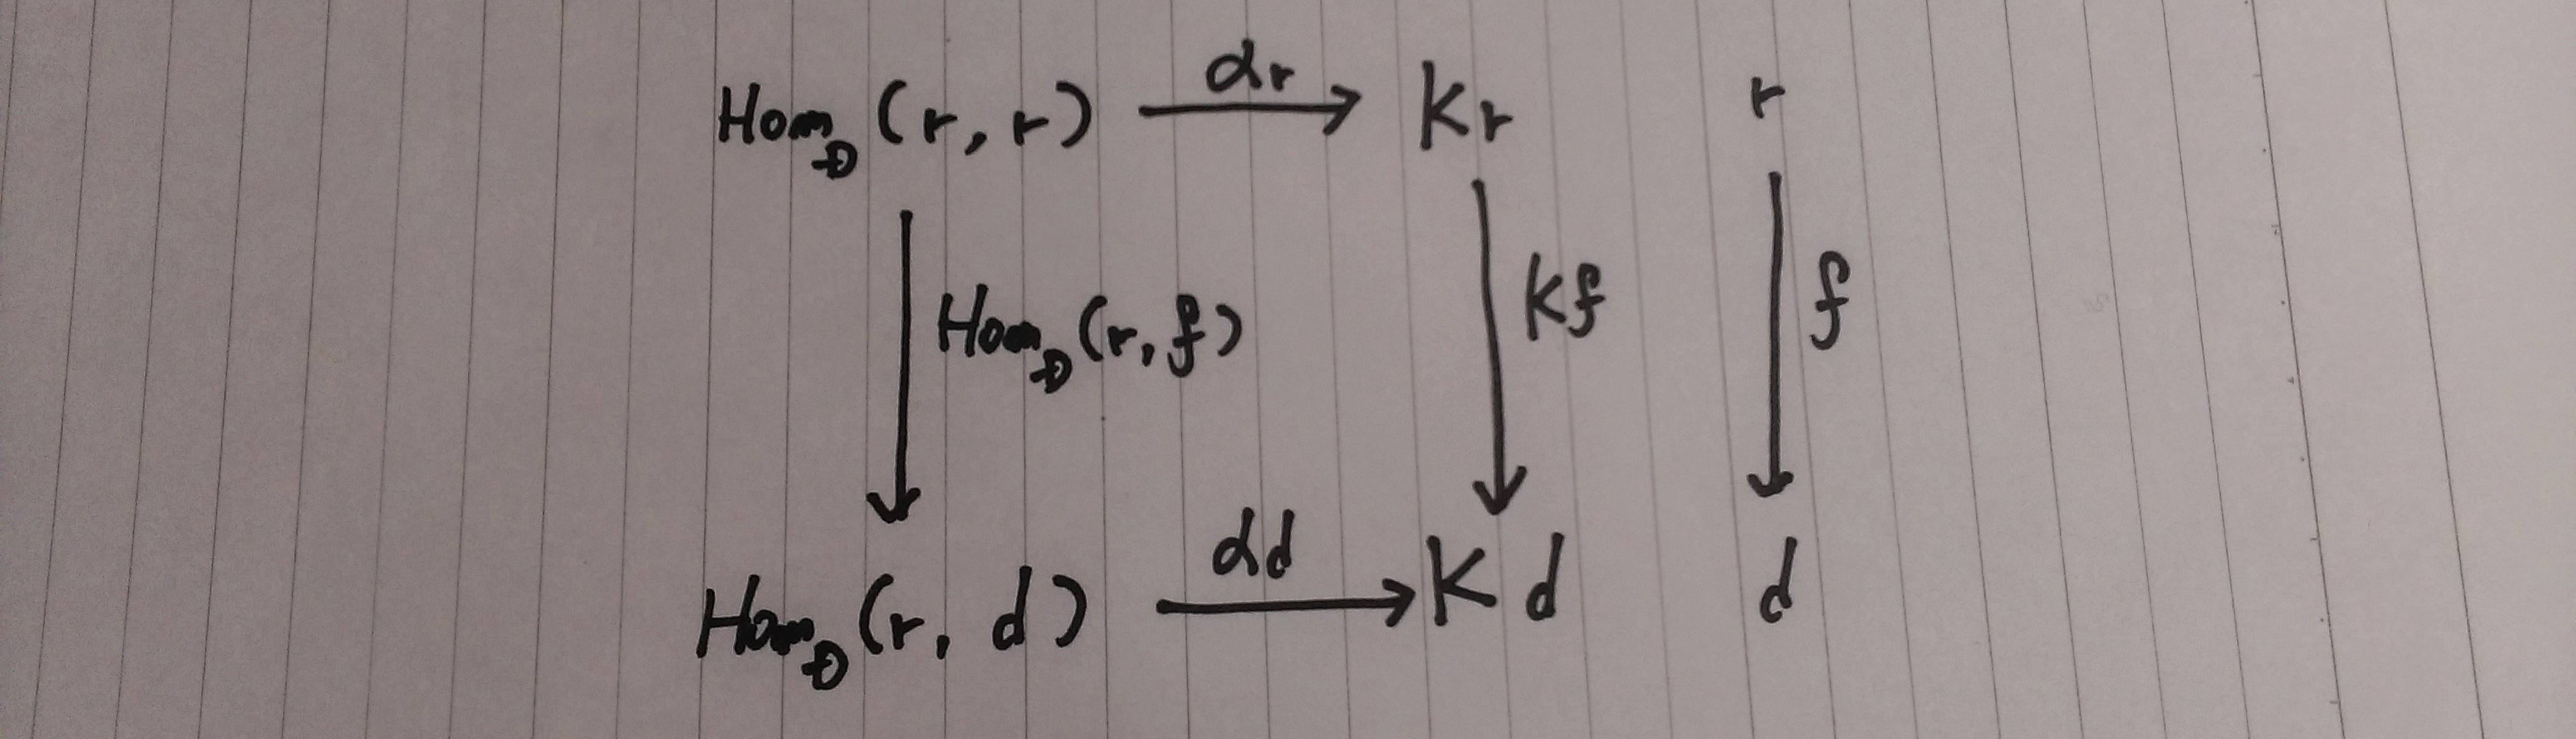 Hom_D (r, r) αr Kr r
Hom_D (r, f) Kf f
Hom_D (r, d) αd K d d